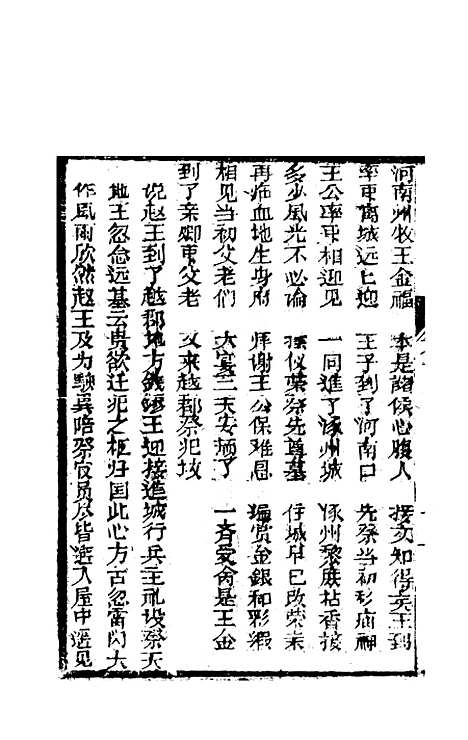 河南州牧王金福 本是諸侯心腹人 接文知得英王到
率衆离城远上迎 王子到了河南口 先祭当初形庙神
王公率衆相迎见 一同進了涿州城 涿州黎庶拈香接
多少風光不必論 摆仪葉祭先尊墓 存城早已改荣
再临血地生身府 拜谢王公保难恩 遍赏金銀和彩缎
相见当初父老们 大宴三天安頓了 一齐爱舍是王金
到了亲鄉衆父老 又来越郡祭犯坟
说赵王到了越郡地方錢 王迎接進城行兵王礼设祭天
地王忽念远墓云贵欲迁犯之柩归国此心方古忽雷闪大
作風雨欣然赵王及为驗異陪祭官员尽皆避入屋中遥见